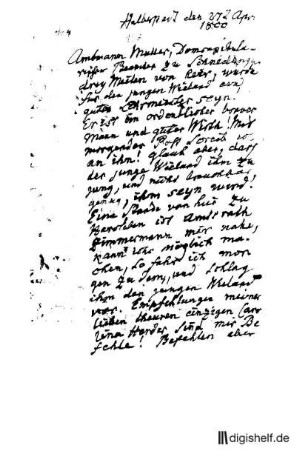 Halberstadt den 27t Apr.
1800
Amtmann Müller, Domcapitula-
rischer Beamter zu
drey Meilen von hier, würde
für den jungen Wieland ein
guter Lehrmeister seyn.
Er ist ein ordentlicher braver
Mann und guter Wirth. Mit
morgender Post schreib ich
an ihn! Glaub aber, daß
der junge Wieland ihm zu
jung, und nicht brauchbar
genug, ihm seyn wird,
Eine Stunde von hier zu
ist Amtsrath
Zimmermann mir nahe,
kann ichs möglich ma-
chen, so fahr ich mor-
gen zu Ihm, und schlag
ihm den jungen Wieland
vor. Empfehlungen meiner
lieben theuren einzigen Caro-
lina Herder sind mir Be-
fehle! Befehlen aber
digishelf.de